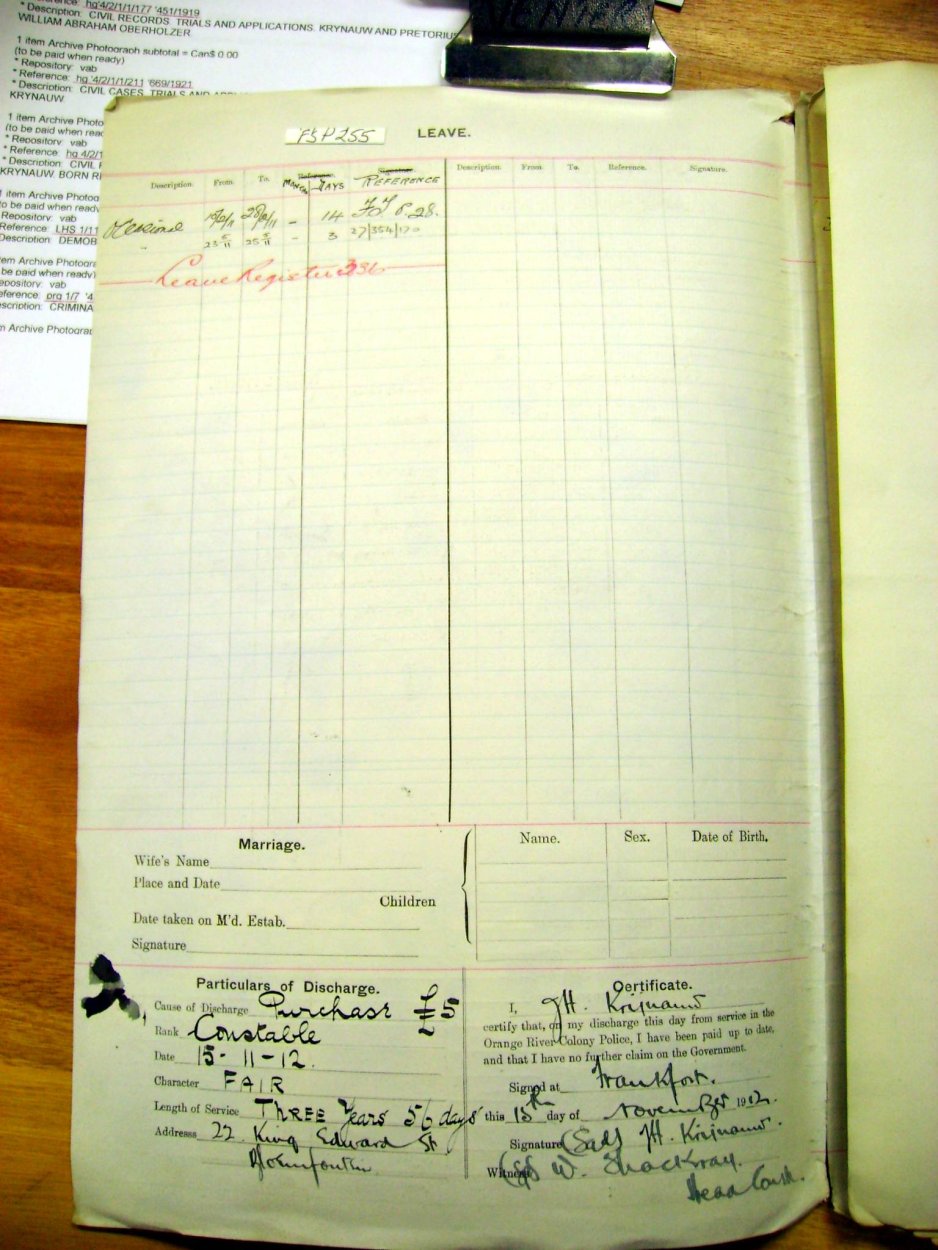 hg 4/2/1/1/177 '451/1919
* Description: CIVIL RECORDS. TRIALS AND APPLICATIONS. KRYNAUW AND PRETORIUS
WILLIAM ABRAHAM OBERHOLZER
1 item Archive Photograph subtotal = Can$ 0.00
(to be paid when ready)
* Repository: vab
* Reference: hg '4/2/1/1/211 '669/1921
* Description: CIVIL CASES. TRIALS AND
KRYNAUW
1 item Archive Photo
(to be paid when read
* Repository: vab
* Reference: hg 4/2/1
* Description: CIVIL
KRYNAUW. BORN
item Archive Photog
to be paid when ready
Repository: vab
Reference: LHS 1/11
Description: DEMOB
em Archive Photogra
be paid when ready)
epository: vab
eference: prg 1/7 '4
scription: CRIMINA
m Archive Photogra
FSP 255
LEAVE.
Description. From. To. MONTHS DAYS REFERENCE Description. From. To. Reference. Signature.
14
3 27/354/170
Leave Register 336
Marriage.
Wife's Name
Place and Date
Children
Date taken on M'd. Estab.
Signature
Name. Sex. Date of Birth.
Particulars of Discharge.
Cause of Discharge Purchase £5
Rank Constable
Date 15-11-12.
Character FAIR
Length of Service THREE Years 56 days
Addresss 22 King Edward St
Bloemfontein
Certificate.
I, JH. Krijnauw
certify that, on my discharge this day from service in the
Orange River Colony Police, I have been paid up to date,
and that I have no further claim on the Government.
Signed at Frankfort.
this 15th day of November 1912.
Signature (Sgd) JH. Krijnauw.
Witness (Sgd) W. Thackray.
Head Const.